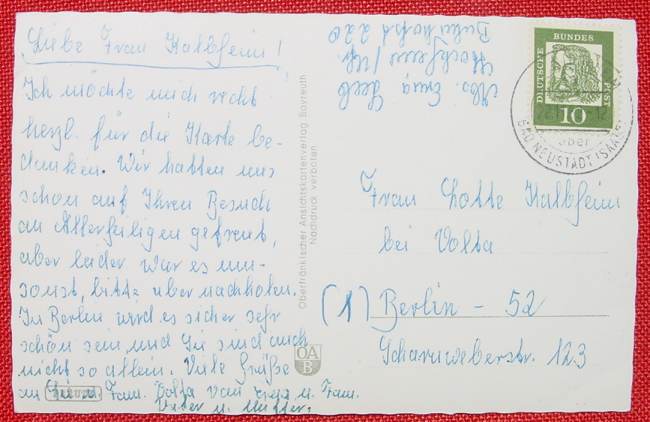 Liebe Frau Kalbheim!
Ich möchte mich recht
herzl. für die Karte be-
danken. Wir hatten uns
schon auf Ihren Besuch
an Allerheiligen gefreut,
aber leider war es um-
sonst, bitte übernachholen.
In Berlin wird es sicher sehr
schön sein und Sie sind auch
nicht so allein. Viele Grüße
an Sie u. Fam. Volta von Erna u. Fam.
Vater u. Mutter.
Oberfränkischer Ansichtskartenverlag Bayreuth
Nachdruck verboten
OA
B
Abs. Erna
DEUTSCHE BUNDES POST
10
über
BAD NEUSTADT (SAALE)
Frau Lotte Kalbheim
bei Volta
(1) Berlin - 52
Scharnweberstr. 123